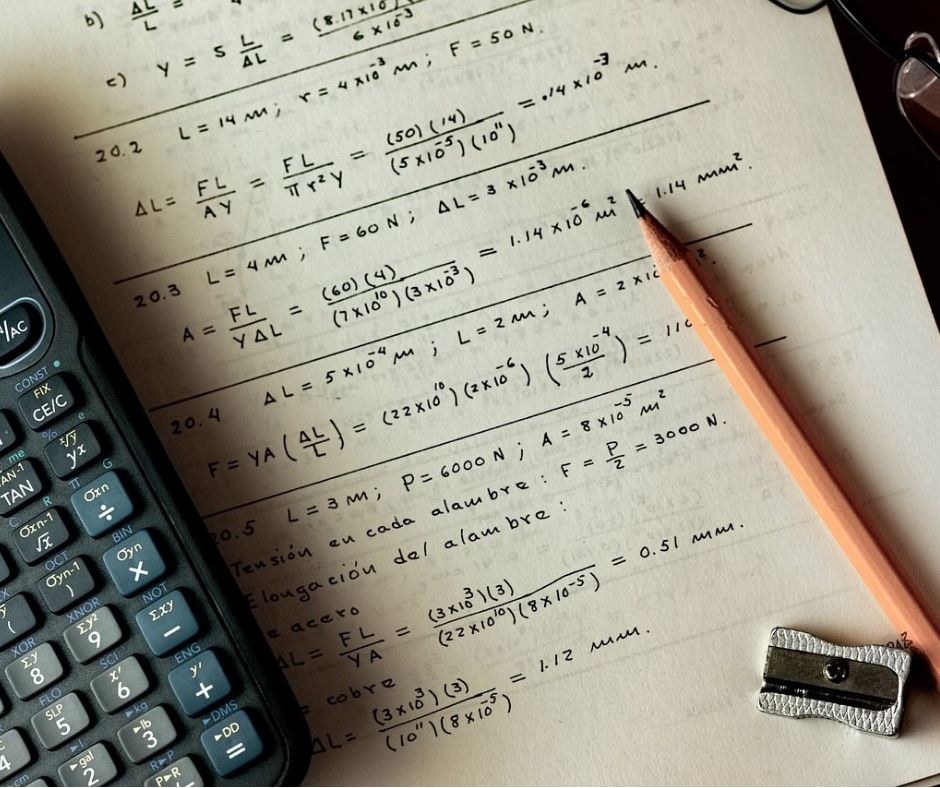 b) ΔL/L =
c) Y = S L/ΔL = (8.17×10 )/(6×10⁻³)
20.2 L = 14 m; r = 4×10⁻³ m; F = 50 N.
ΔL = FL/AY = FL/πr²Y = (50)(14)/(5×10⁻⁵)(10¹¹) = .14×10⁻³ m.
20.3 L = 4 m; F = 60 N; ΔL = 3×10⁻³ m.
A = FL/YΔL = (60)(4)/(7×10¹⁰)(3×10⁻³) = 1.14×10⁻⁶ m² = 1.14 mm².
20.4 ΔL = 5×10⁻⁴ m; L = 2 m; A = 2×10 ².
F = YA (ΔL/L) = (22×10¹⁰)(2×10⁻⁶) (5×10⁻⁴/2) = 110
20.5 L = 3 m; P = 6000 N; A = 8×10⁻⁵ m²
Tensión en cada alambre: F = P/2 = 3000 N.
Elongación del alambre:
e acero
ΔL = FL/YA = (3×10³)(3)/(22×10¹⁰)(8×10⁻⁵) = 0.51 mm.
e cobre
ΔL = (3×10³)(3)/(10¹¹)(8×10⁻⁵) = 1.12 mm.
/AC
CONST
FIX
CE/C
ˣ√y
yˣ
TAN⁻¹
TAN
σxn
÷
σxn-1
√x
OCT
BIN
σyn-1
)
σyn
×
XNOR
NOT
(
Σy²
9
Σxy
−
XOR
SCI
ENG
Σy
8
x'
6
y'
+
FLO
▸kg
▸DMS
SLP
5
▸lb
3
▸DD
=
4
▸l
R▸P
▸gal
2
P▸R
cm